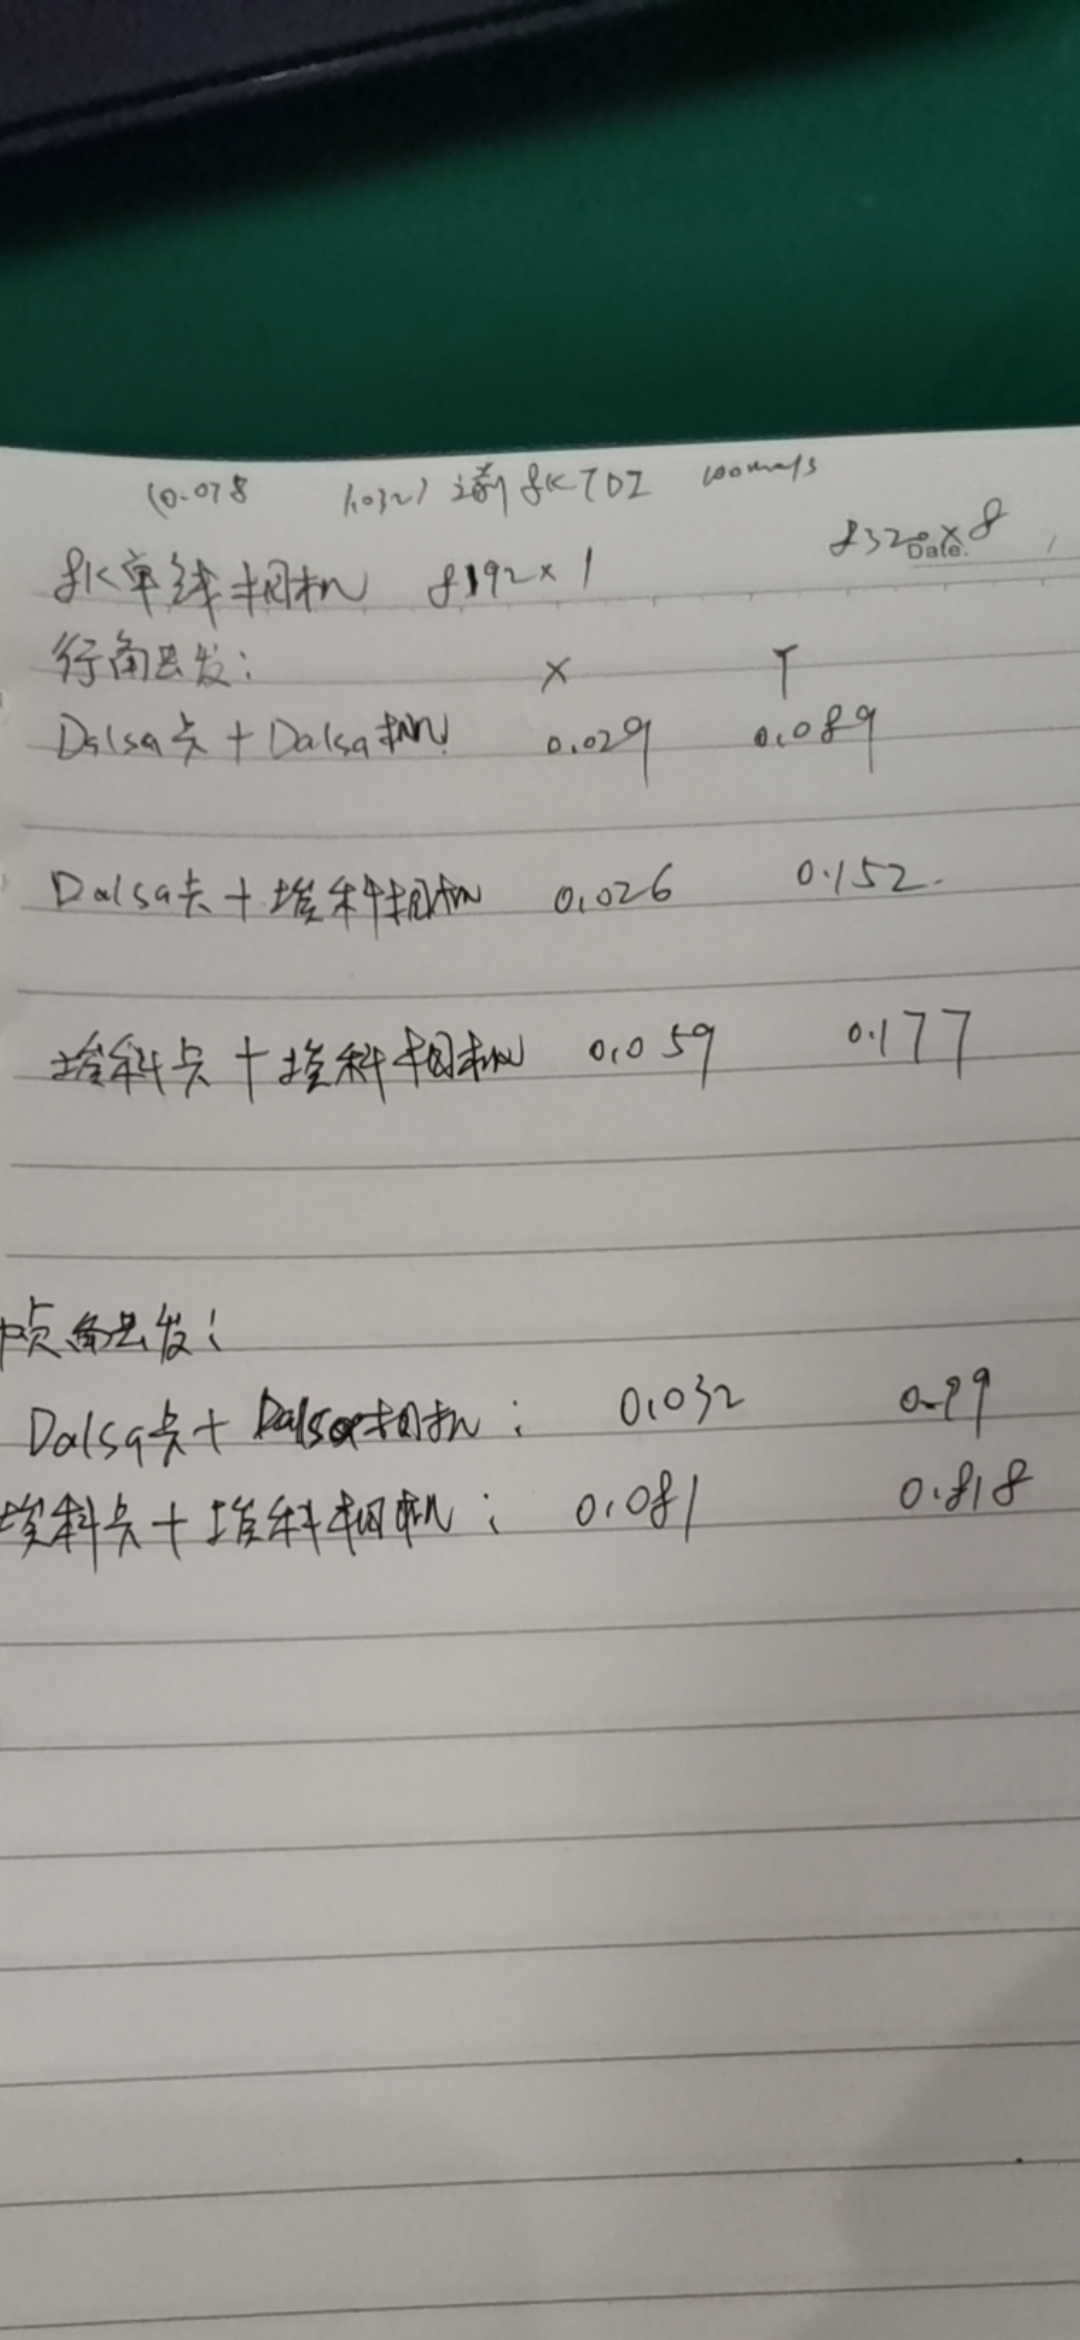 (0.078 1.032) 之前 8K TDI 100mm/s
8320×8
Date.
8K单线相机 8192×1
行角虫发: X Y
Dalsa卡+Dalsa相机 0.029 0.089
Dalsa卡+埃科相机 0.026 0.152
埃科卡+埃科相机 0.059 0.177
帧角虫发:
Dalsa卡+Dalsa相机: 0.032
埃科卡+埃科相机: 0.081 0.818